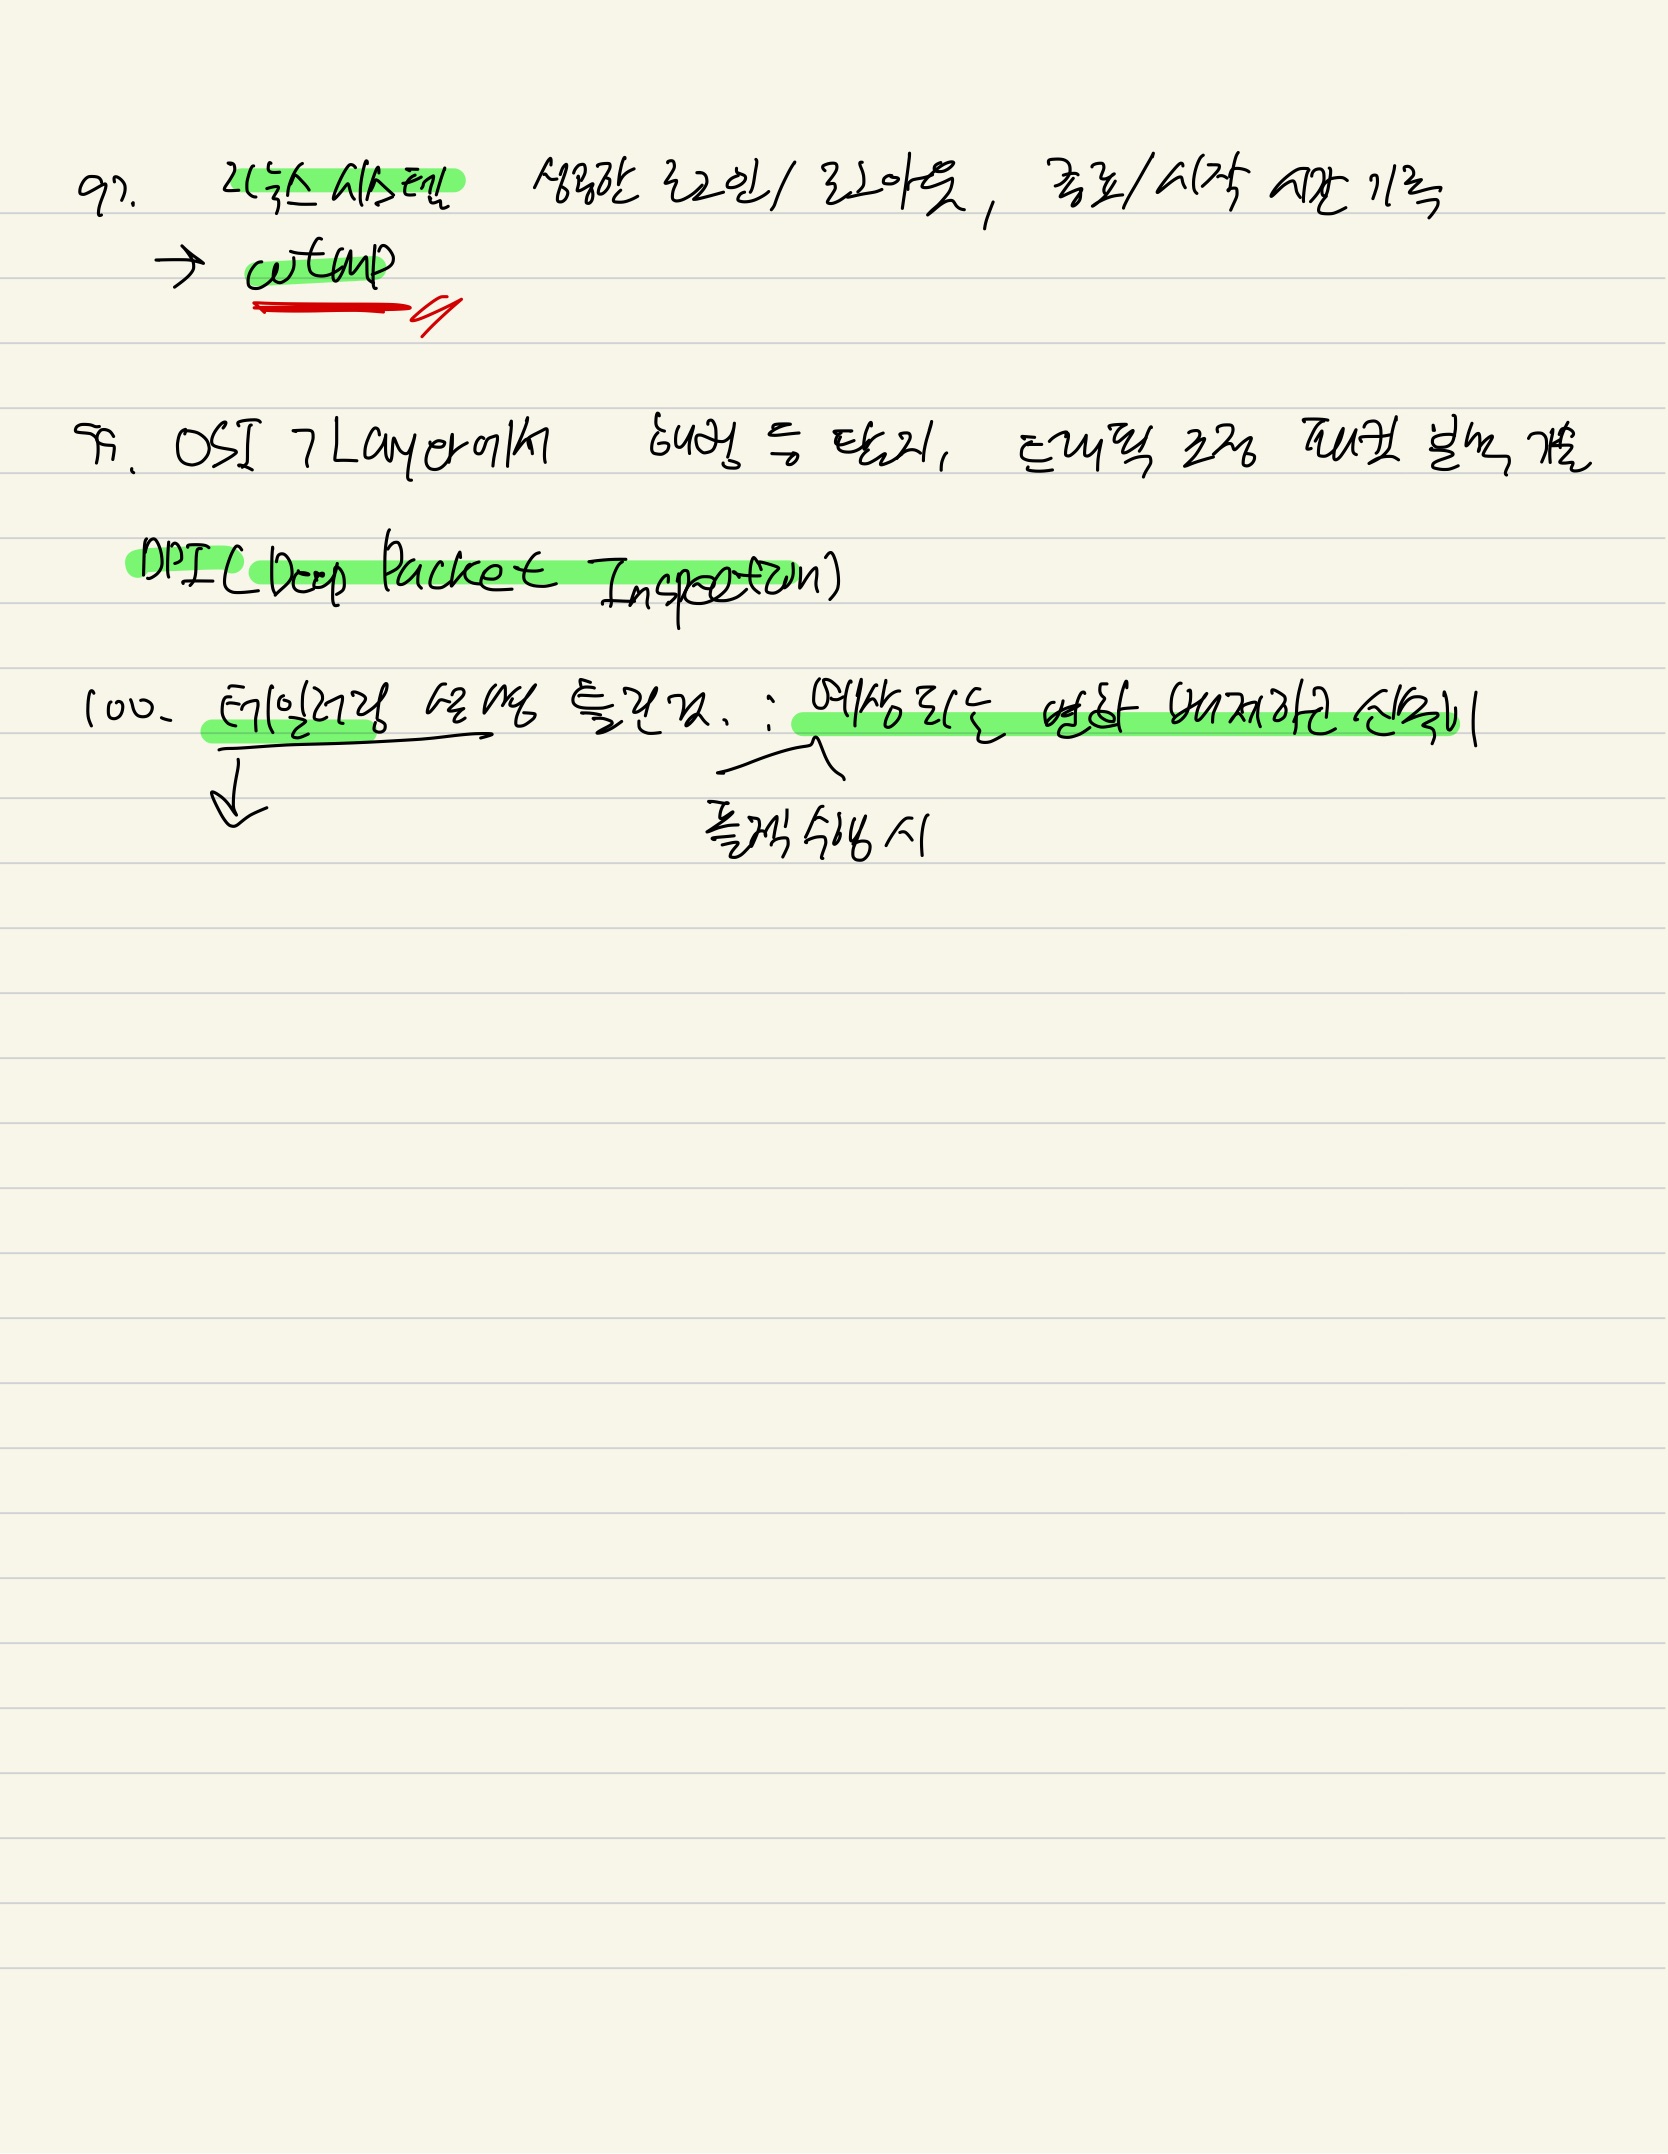 97. 리눅스 시스템 성공한 로그인/로그아웃, 종료/시작 시간 기록
→ wtmp
99. OSI 7 Layer에서 해킹 등 탐지, 트래픽 조정 패킷 분석 기술
DPI(Deep Packet Inspection)
100. 테일러링 설명 틀린것. : 예상되는 변화 배제하고 신속히
플젝 수행 시